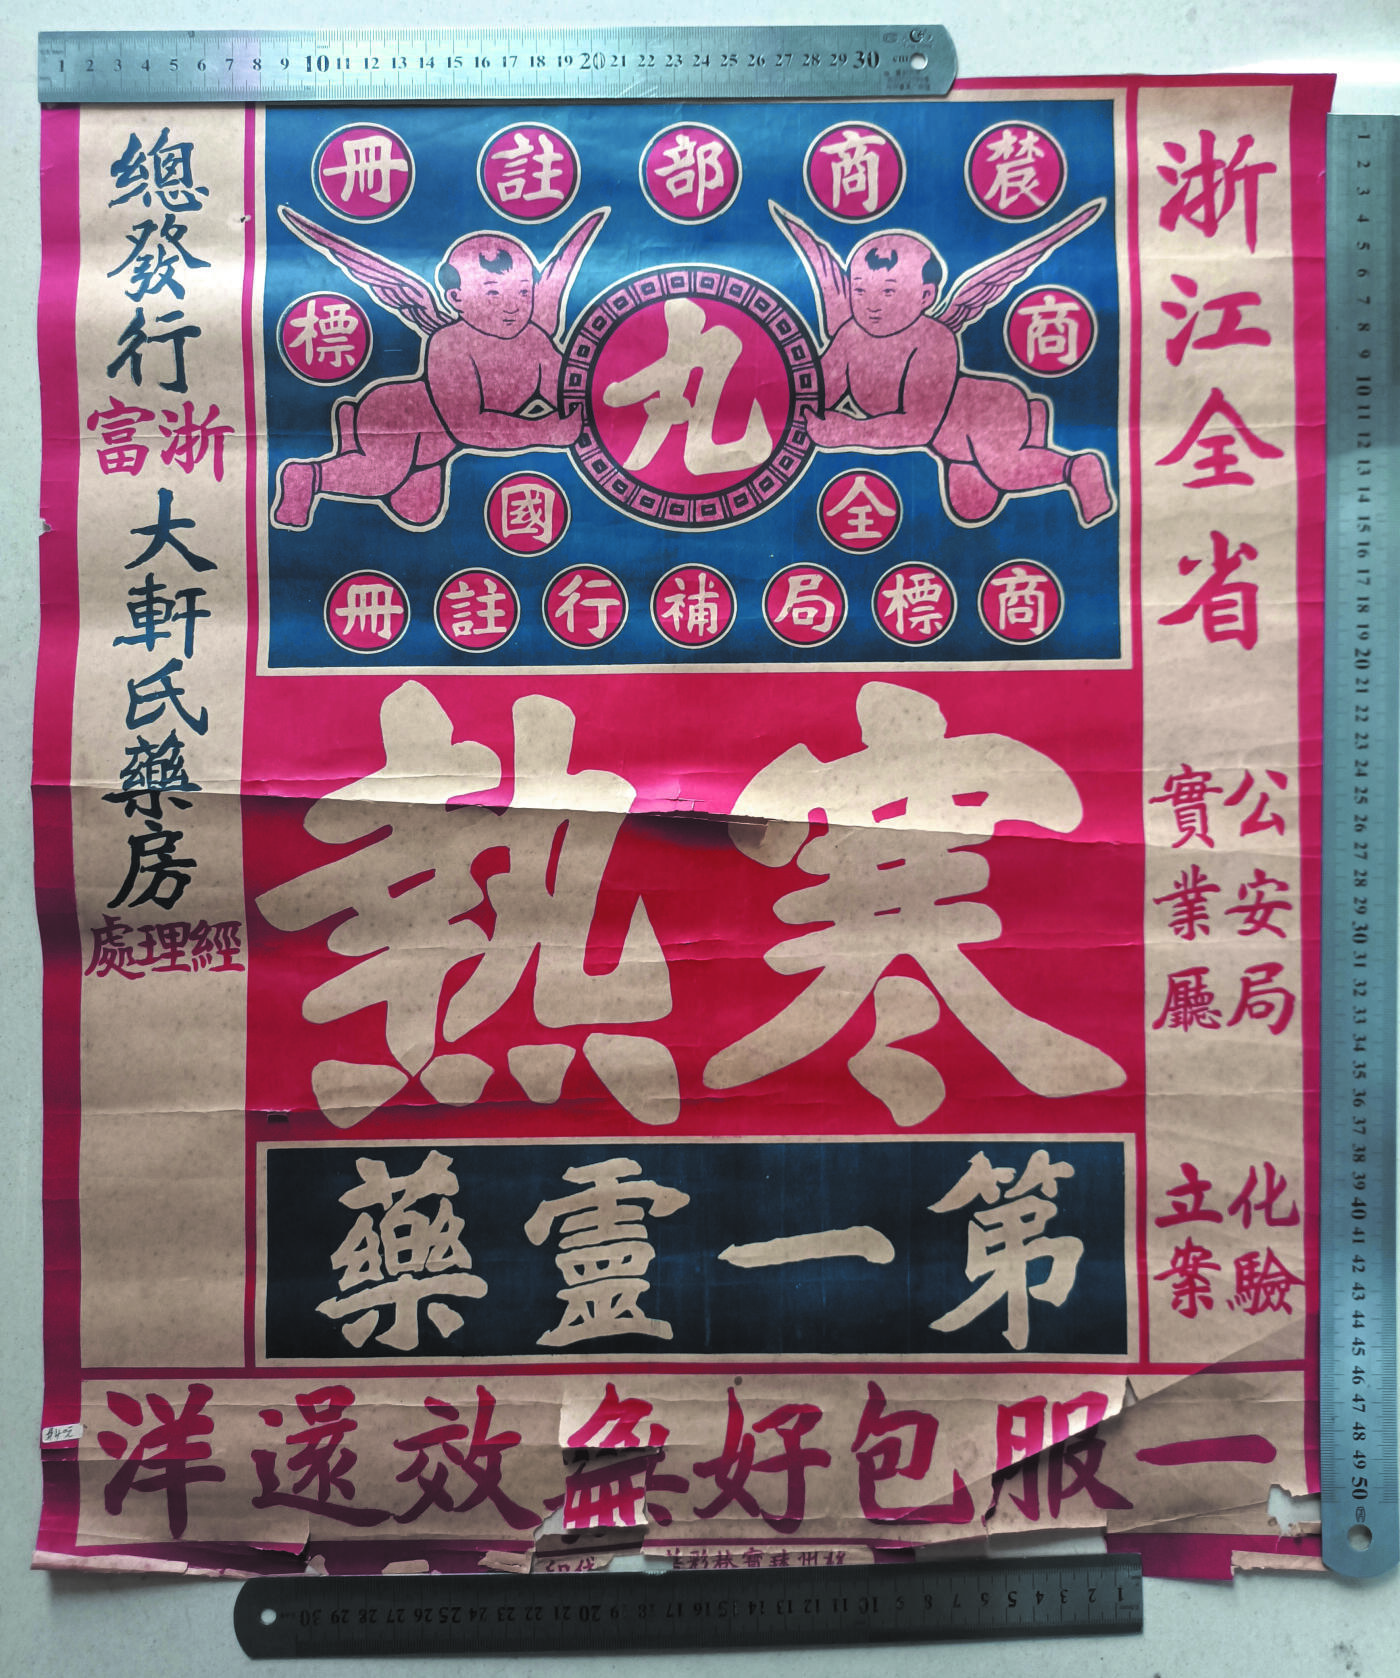 浙江全省
公安局
實業廳
化驗
立案
辳商部註冊
商標
丸
全國
商標局補行註冊
寒熱
第一靈藥
總發行
浙富
大軒氏藥房
經理處
一服包好無效還洋